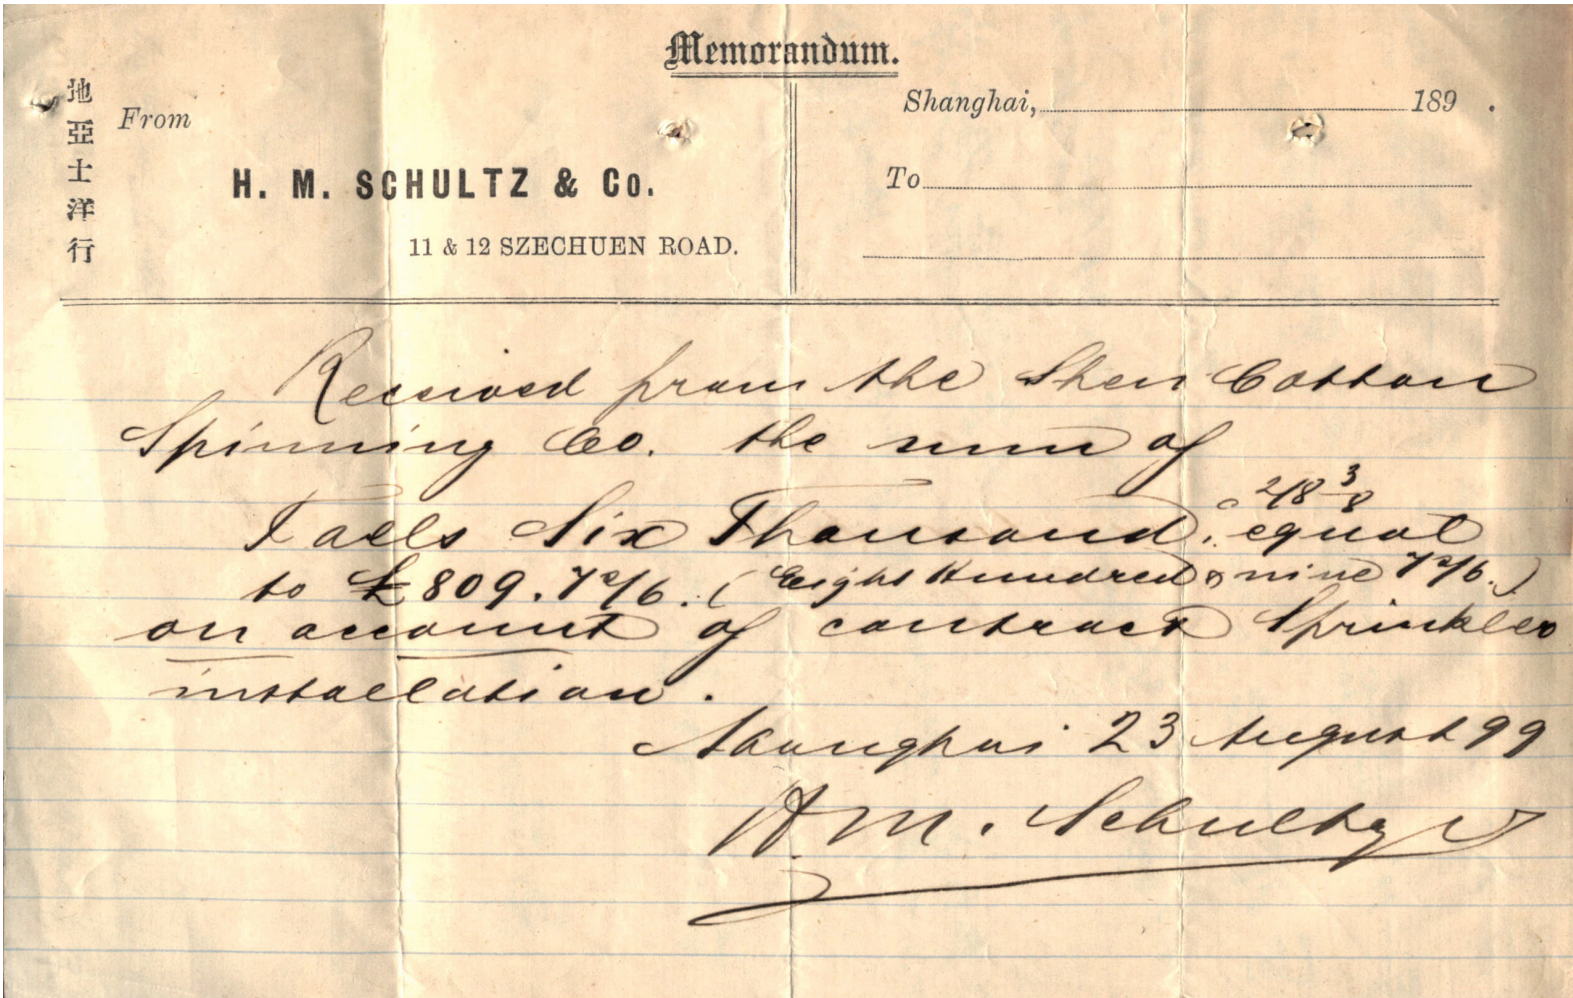 Memorandum.
地亞士洋行
From
H. M. SCHULTZ & Co.
11 & 12 SZECHUEN ROAD.
Shanghai, 189 .
To
Received from the Shen Cotton
Spinning Co. the sum of
2/8 3/8
Taels Six Thousand, equal
to £809.7s/6. (Eight Hundred & nine 7s/6.)
on account of contract Sprinkler
installation.
Shanghai 23 August 99
H. M. Schultz